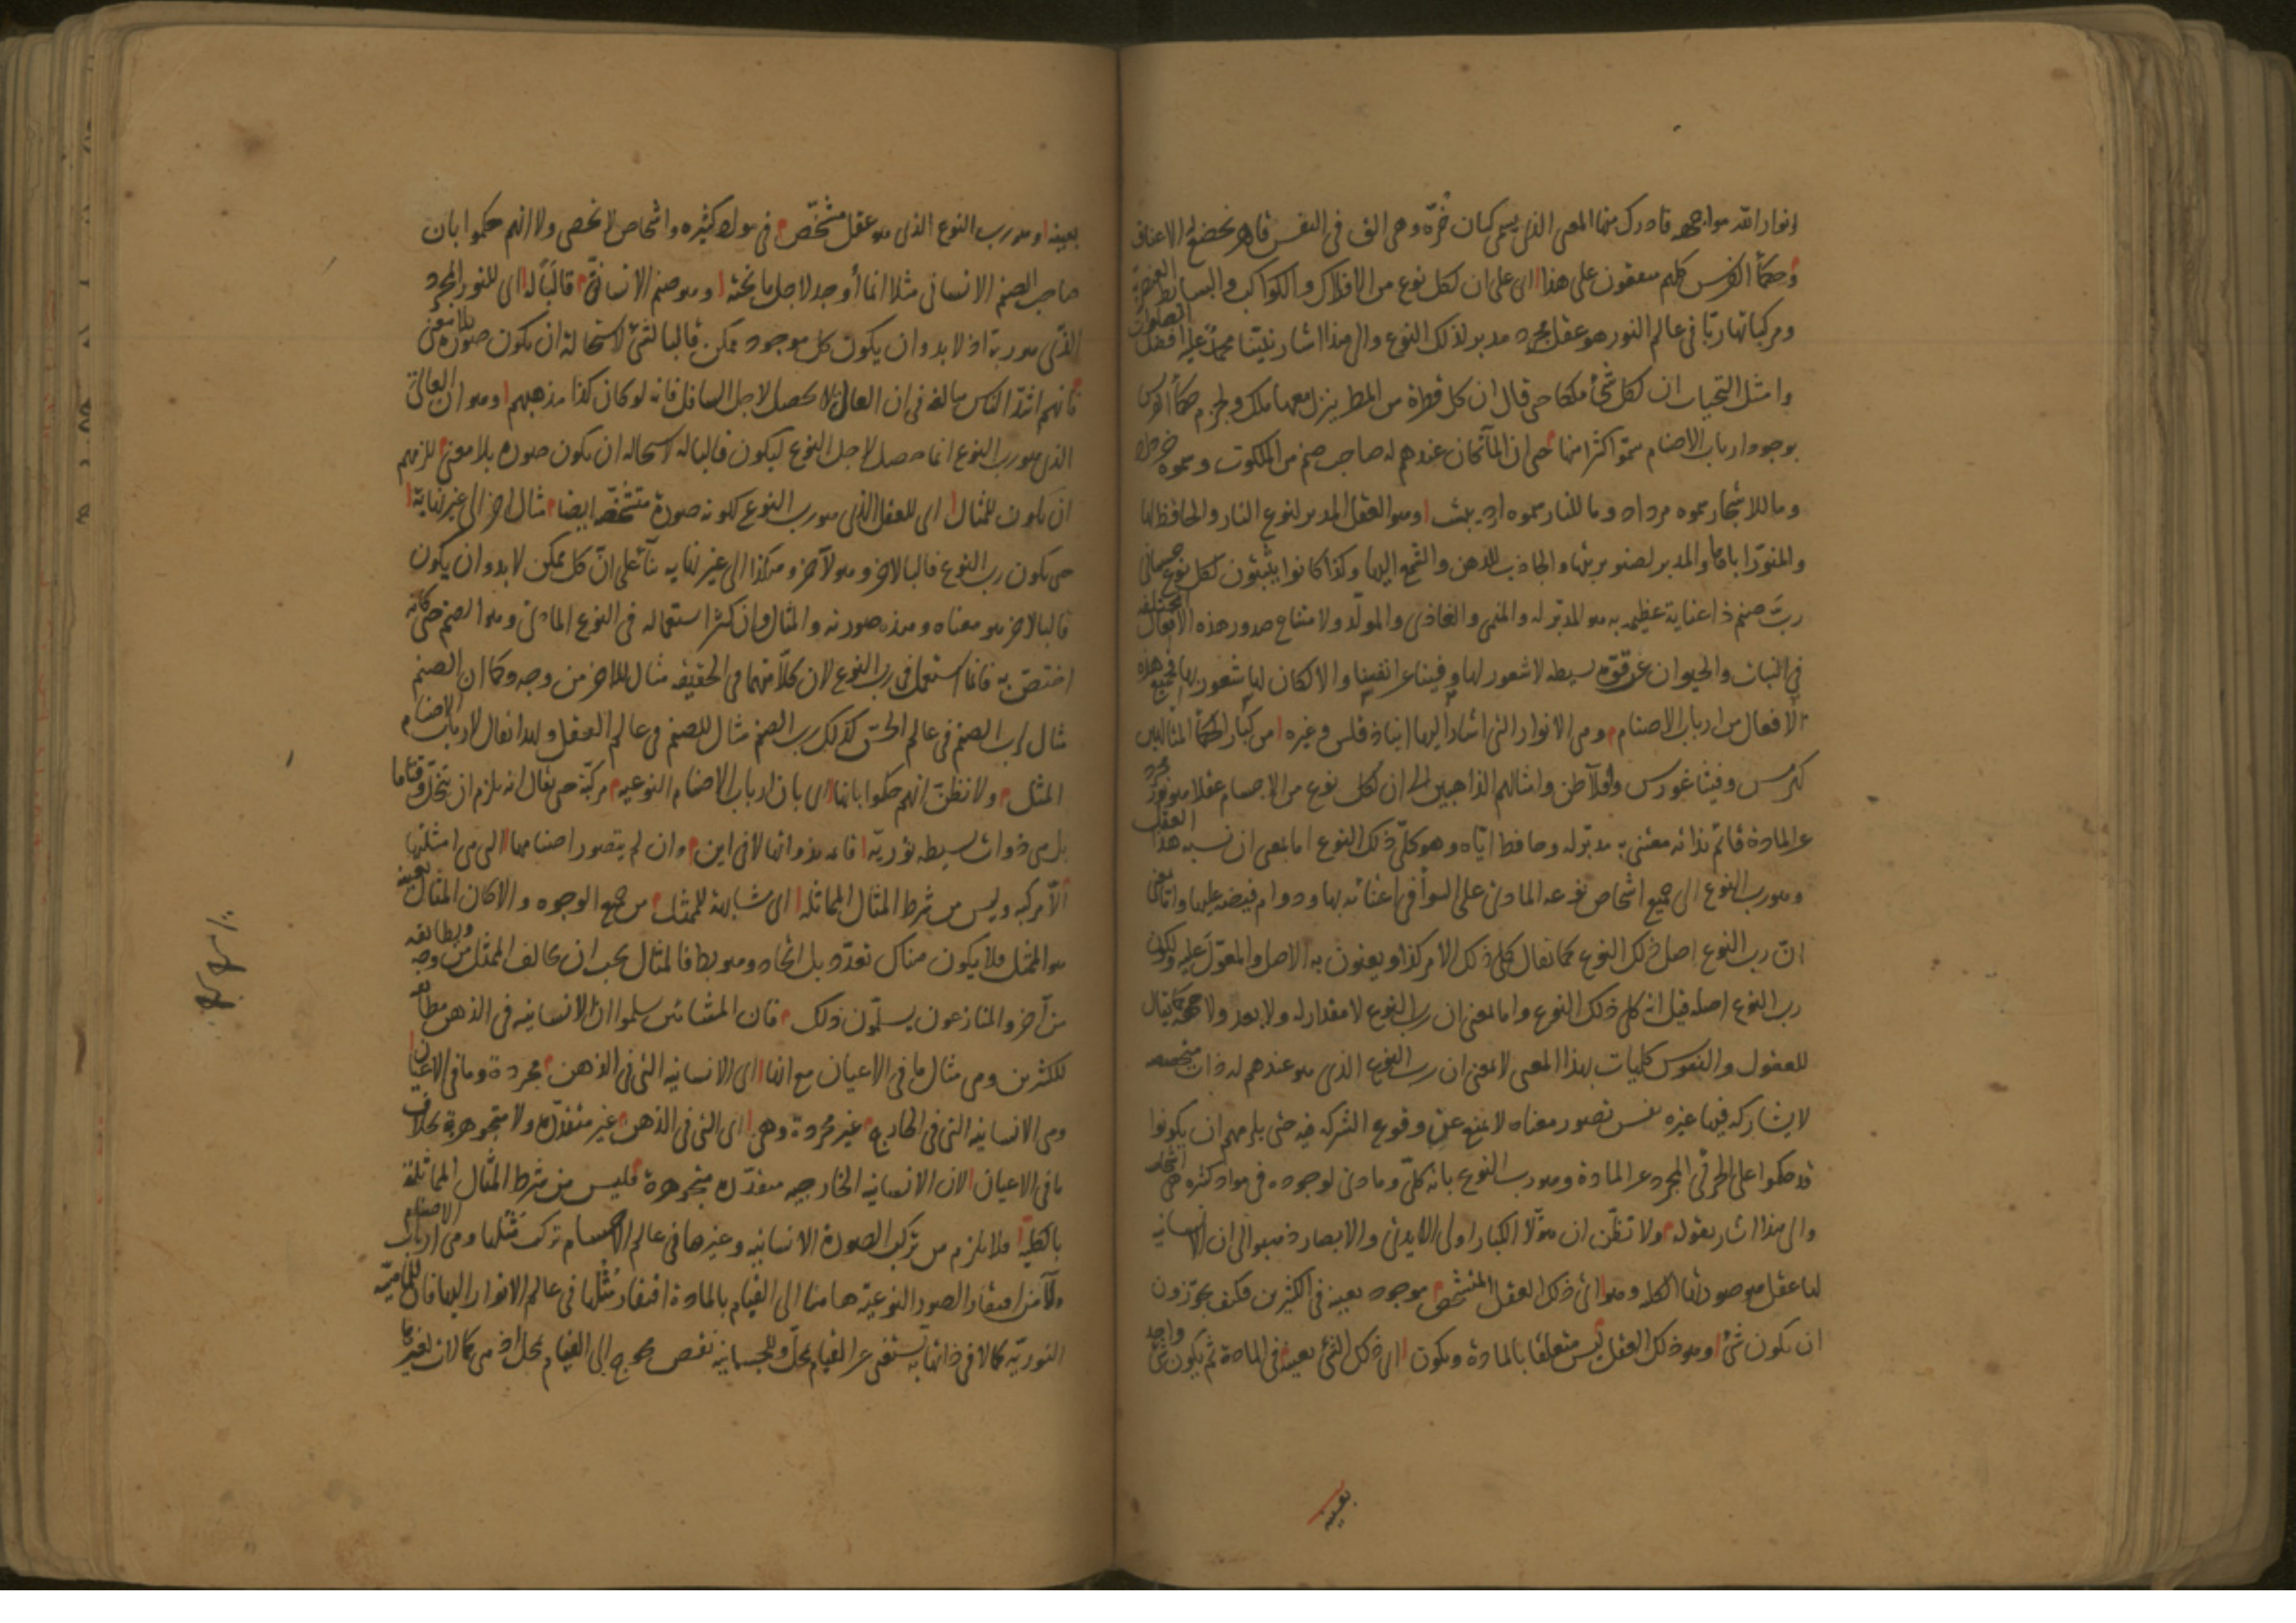 انوار الله مواجهه فادرك منها المعنى الذى يسمى كيان خرّه وهى الق فى النفس قاهر تخضع له الاعناق
وحكمأ الفرس كلهم متفقون على هذا اى على ان لكل نوع من الافلاك والكواكب والبسائط العنصرية
ومركباتها ربّا فى عالم النور هو عقل مجرد مدبر لذلك النوع والى هذا اشار نبيّنا محمد عليه افضل الصلوات
وامثل التحيات ان لكل شئ ملكا حتى قال ان كل قطرة من المطر ينزل معها ملك ولجزم حكمأ الفرس
بوجود ارباب الاصنام سمّوا كثرا منها حتى ان المأ كان عندهم له صاحب صنم من الملكوت وسموه خرداد
وما للاشجار سموه مرداد وما للنار سموه اردیبهشت وهو العقل المدبر لنوع النار والحافظ لها
والمنوّر اياها والمدبر لصنوبريتها والجاذب للدهن والشمع اليها وكذا كانوا يثبتون لكل نوع جسمانى
ربّ صنم ذا عناية عظيمه به هو المدبّر له والمنمى والغاذى والمولّد ولامتناع صدور هذه الافعال المختلفه
فى النبات والحيوان عن قوّة بسيطه لا شعور لها وفينا عن انفسنا والا لكان لها شعور بها فجميع هذه
الافعال من ارباب الاصنام وهى الانوار التى اشار اليها انباذقلس وغيره من كبار الحكمأ المتألهين
كهرمس وفيثاغورس وافلاطن وامثالهم الذاهبين الى ان لكل نوع من الاجسام عقلا هو نور مجرد
عن المادة قائم بذاته معتنى به مدبّر له وحافظ ايّاه وهو كلّى ذلك النوع اما بمعنى ان نسبه هذا العقل
وهو رب النوع الى جميع اشخاص نوعه المادى على السوأ فى اعتنائه بها ودوام فيضه عليها واما بمعنى
انّ رب النوع اصل ذلك النوع كما يقال كلى ذلك الامر كذا ويعنون به الاصل والمعوّل عليه ولكون
رب النوع اصله قيل انه كلى ذلك النوع واما بمعنى ان رب النوع لا مقدار له ولا بعد ولا جهة كما يقال
للعقول والنفوس كليات بهذا المعنى لا بمعنى ان رب النوع الذى هو عندهم له ذات متخصصه
لا يشاركه فيها غيره نفس تصور معناه لا يمنع عن وقوع الشركه فيه حتى يلزمهم ان يكونوا
قد حكموا على الجزئى المجرد عن المادة وهو رب النوع بانه كلّى ومادى لوجوده فى مواد كثره هى اشخاصه
والى هذا اشار بقوله ولا تظنّ ان هولأ الكبار اولى الايدى والابصار ذهبوا الى ان الانسانيه
لها عقل هو صورتها الكليه وهو اى ذلك العقل المتشخص موجود بعينه فى الكثيرين فكيف يجوّزون
ان يكون شئ وهو ذلك العقل ليس متعلقا بالمادة ويكون اى ذلك الشئ بعينه فى المادة ثم يكون شئ واحد
بعينه
بعينه وهو رب النوع الذى هو عقل متشخّص فى مواد كثيره واشخاص لا تحصى ولا انهم حكموا بان
صاحب الصنم الانسانى مثلا انما أُوجد لاجل ما تحته وهو صنم الانسانىّ قالبًا له اى للنور المجرد
الذى هو ربه اذ لا بد وان يكون كل موجود ممكن قالبا لشئ لاستحالة ان يكون صورة بلا معنى
فانهم اشدّ الناس مبالغه فى ان العالى لا يحصل لاجل السافل فانه لو كان كذا مذهبهم وهو ان العالى
الذى هو رب النوع انما حصل لاجل النوع ليكون قالبا له لاستحاله ان يكون صورة بلا معنى للزمهم
ان يكون للمثال اى للعقل الذى هو رب النوع لكونه صورة متشخصه ايضا مثال اخر الى غير نهاية
حتى يكون رب النوع قالبا لاخر وهو لآخر وهكذا الى غير نهايه بنأ على انّ كل ممكن لا بد وان يكون
قالبا لاخر هو معناه وهذه صورته والمثال وان كثر استعماله فى النوع المادى وهو الصنم حتى كانه
اختصّ به فانما استعمل فى رب النوع لان كلّا منهما فى الحقيقه مثال للاخر من وجه وكما ان الصنم
مثال لرب الصنم فى عالم الحسّ كذلك رب الصنم مثال للصنم فى عالم العقل ولهذا يقال لارباب الاصنام
المثل ولا تظنّ انهم حكموا بانها اى بان ارباب الاصنام النوعيه مركبّة حتى يقال انه يلزم ان تنحلّ وقتا ما
بل هى ذوات بسيطه نوريّة قائمه بذواتها لا فى اين وان لم يتصور اصنامها التى هى امثلتها
الّا مركبه وليس من شرط المثال المماثله اى مشابهته للممثل من جميع الوجوه والا كان المثال بعينه
هو الممثل فلا يكون هناك تعدّد بل اتحاد وهو بط فالمثال يجب ان يخالف الممثّل من وجه ويطابقه
من آخر والمنازعون يسلّمون ذلك فان المشائين سلموا انّ الانسانيه فى الذهن مطابقه
للكثيرين وهى مثال ما فى الاعيان مع انها اى الانسانيه التى فى الذهن مجردة وما فى الاعيان
وهى الانسانيه التى فى الخارج غير مجردة وهى اى التى فى الذهن غير متقدّره ولا متجوهرة بخلاف
ما فى الاعيان لان الانسانيه الخارجيه متقدّره متجوهرة فليس من شرط المثال المماثلة
بالكليّة فلا يلزم من تركب الصورة الانسانيه وغيرها فى عالم الاجسام تركب مُثُلها وهى ارباب الاصنام
ولا من افتقار الصور النوعيّة هاهنا الى القيام بالمادة افتقار مُثُلها فى عالم الانوار اليها فان للماهيّة
النوريّه كمالا فى ذاتها به تستغنى عن القيام بمحل وللجسمانيه نقص محوج الى القيام بمحل اذ هى كمالات لغيرها